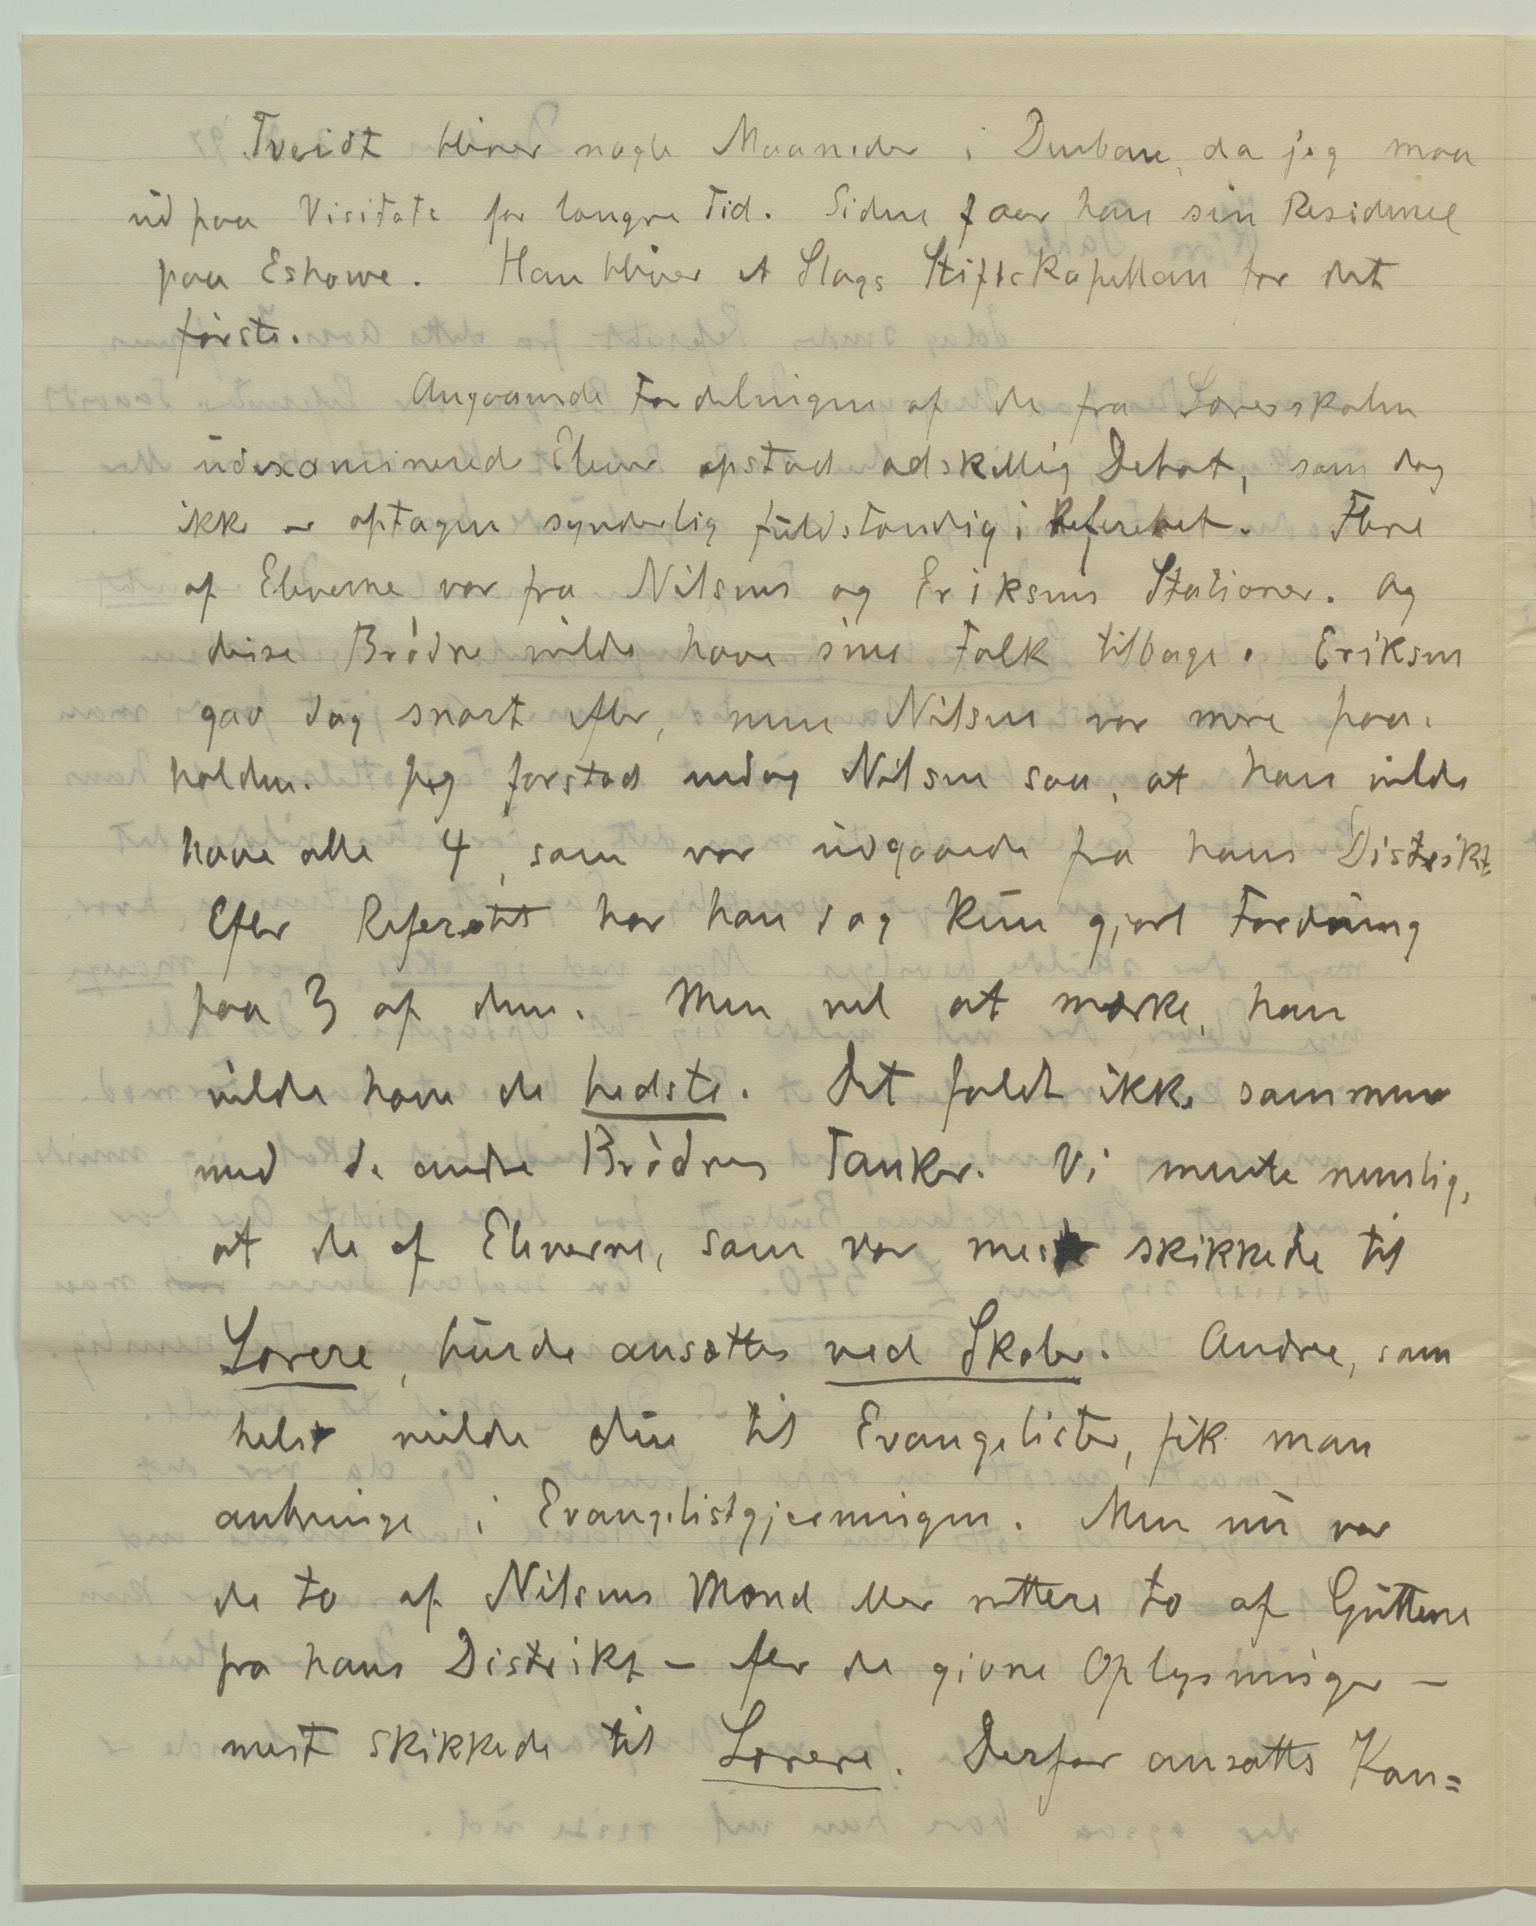 Tveidt bliver nogle Maaneder i Durban, da jeg maa
ud paa Visitats for længre Tid. Siden faar han sin Residence
paa Eshowe. Han bliver et Slags Stiftskapellan for det
første.
Angaaende Fordelingen af de fra Lærerskolen
udexaminered Elever opstod adskellig Debat, som dog
ikke er optagen synderlig fuldstændig i Referatet. Flere
af Eleverne var fra Nilsens og Eriksens Stationer. Og
disse Brødre vilde have sine Folk tilbage. Eriksen
gav dog snart efter, men Nilsen var mere paa-
holden. Jeg forstod endog Nilsen saa, at han vilde
have alle 4, som var udgaaede fra hans Distrikt
Efter Referatet har han dog kun gjort Fordring
paa 3 af dem. Men vel at mærke, han
vilde have de bedste. Det faldt ikke sammen
med de andre Brødres Tanker. Vi mente nemlig,
at de af Eleverne, som var mest skikkede til
Lærere, burde ansættes ved Skoler. Andre, som
helst vilde due til Evangelister, fik man
anbringe i Evangelistgjerningen. Men nu var
de to af Nilsens Mænd eller rettere to af Gutterne
fra hans Distrikt – efter de givne Oplysninger –
mest skikkede til Lærere. Derfor ansatte Kon=